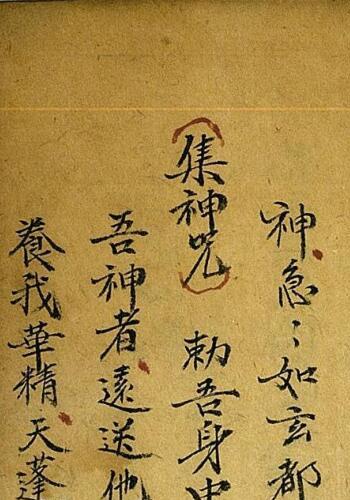 神急〻如玄都
集神咒 勅吾身中
吾神者遠送他
養我華精天蓬